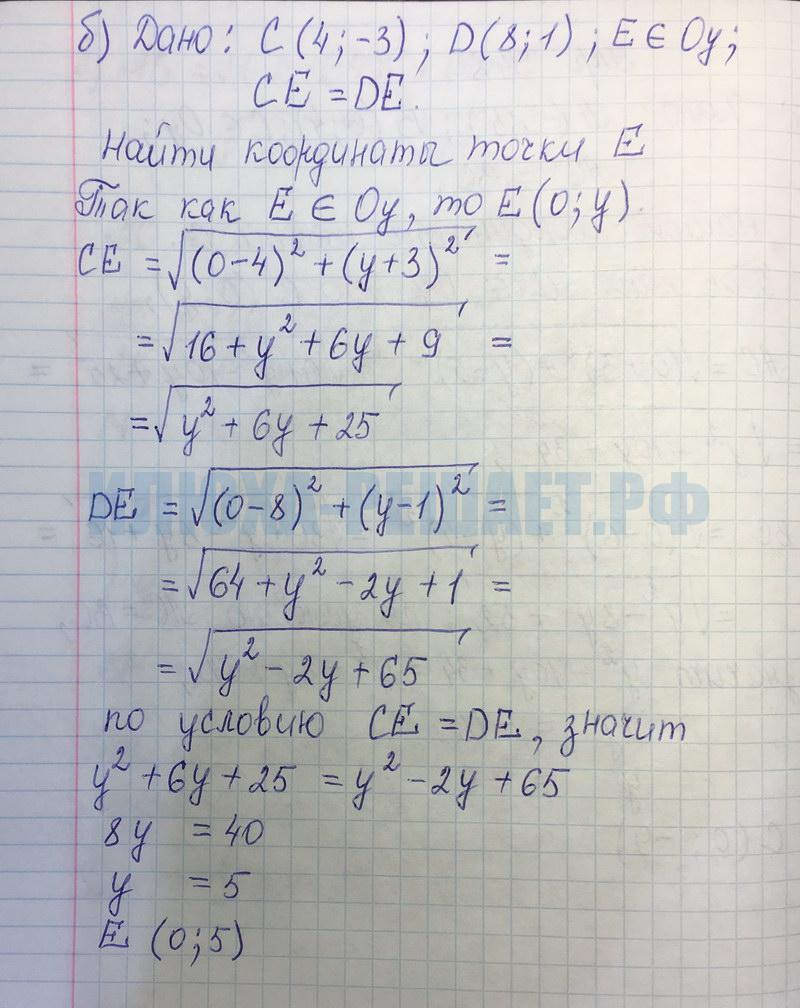 б) Дано: C(4;-3); D(8;1); E∈Oy;
CE = DE.
Найти координаты точки E
Так как E∈Oy, то E(0;y).
CE = √((0-4)² + (y+3)²) =
= √(16 + y² + 6y + 9) =
= √(y² + 6y + 25)
ИЛЮХА-РЕШАЕТ.РФ
DE = √((0-8)² + (y-1)²) =
= √(64 + y² - 2y + 1) =
= √(y² - 2y + 65)
по условию CE = DE, значит
y² + 6y + 25 = y² - 2y + 65
8y = 40
y = 5
E (0;5)